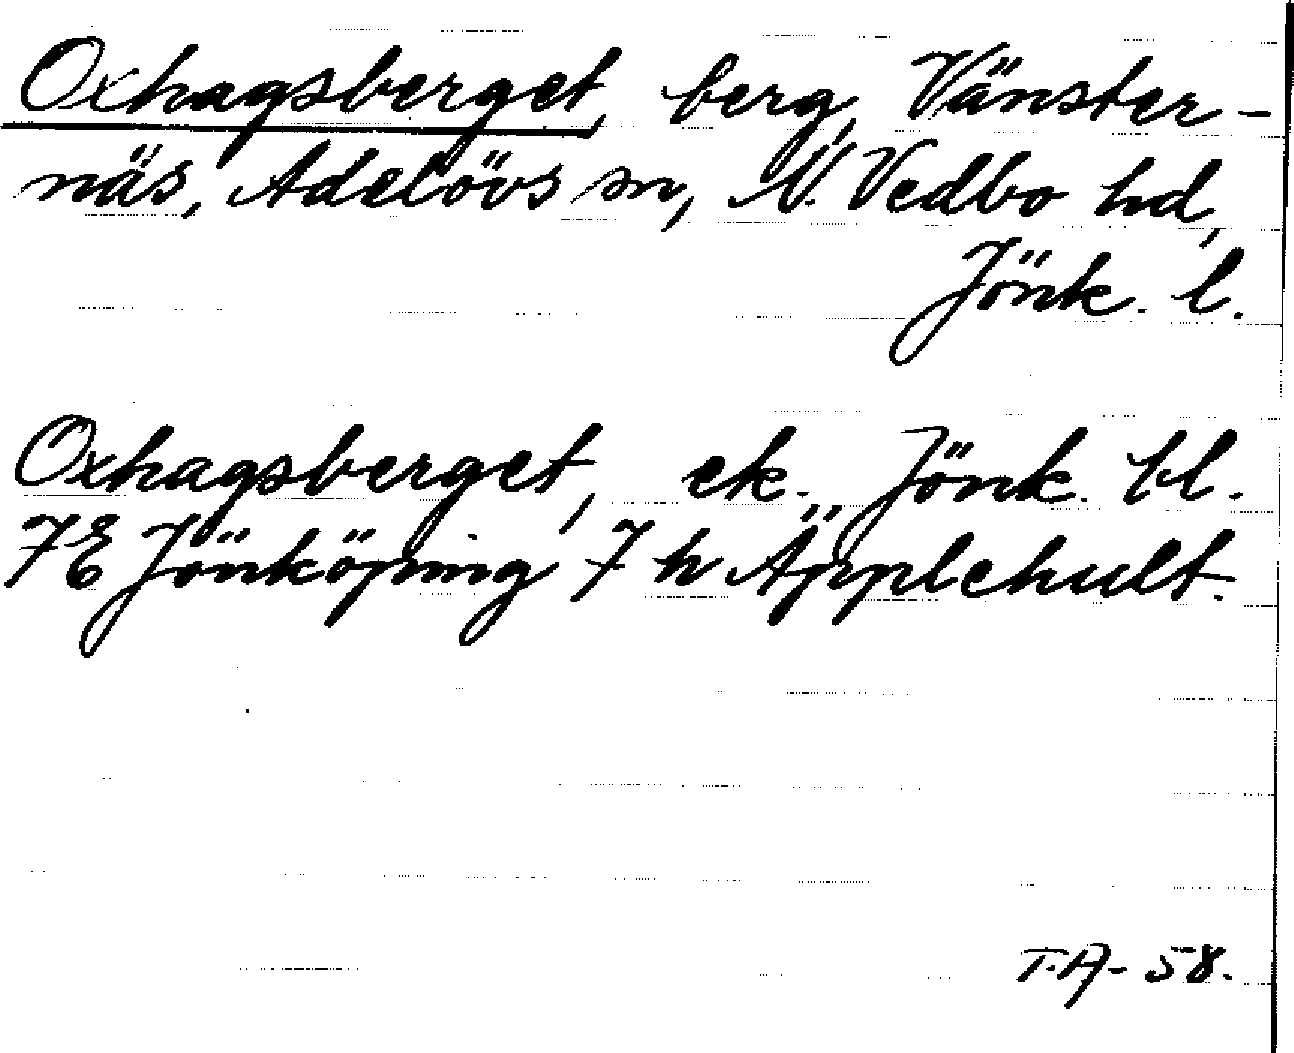 Oxhagsberget, berg, Vänster-
näs, Adelövs sn, N. Vedbo hd,
Jönk. l.
Oxhagsberget, ek. Jönk. bl.
7E Jönköping 7 h Äpplehult.
T.A- 58.